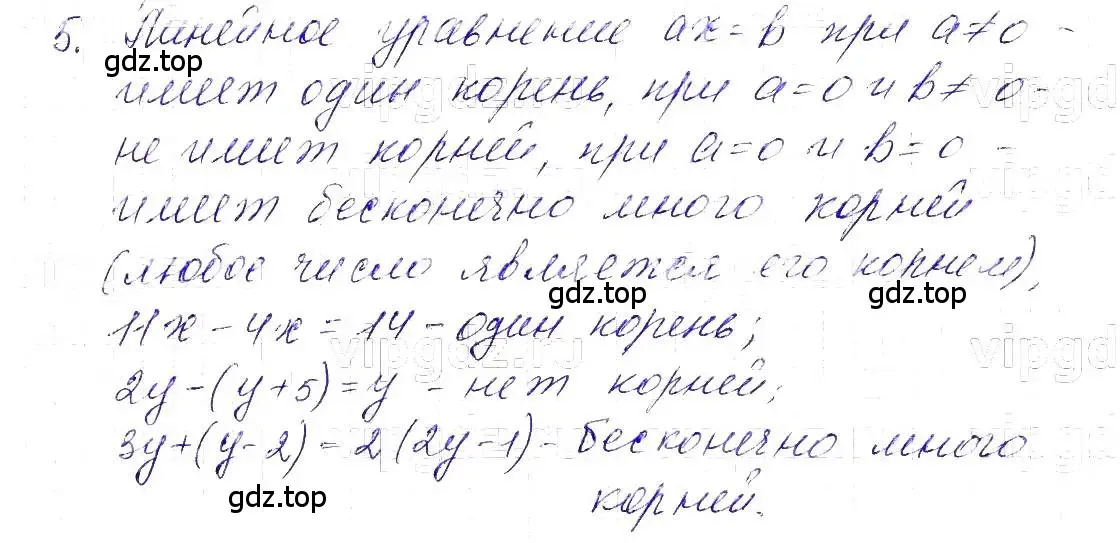 5. Линейное уравнение ax = b при a ≠ 0 -
имеет один корень, при a = 0 и b ≠ 0 -
не имеет корней, при a = 0 и b = 0 -
имеет бесконечно много корней
(любое число является его корнем),
11x - 4x = 14 - один корень;
2y - (y + 5) = y - нет корней;
3y + (y - 2) = 2 (2y - 1) - бесконечно много
корней.
gdz.top
gdz.top
gdz.top
gdz.top
gdz.top
vipgdz.ru
vipgd
vipgd
vipgdz.ru
vipgd